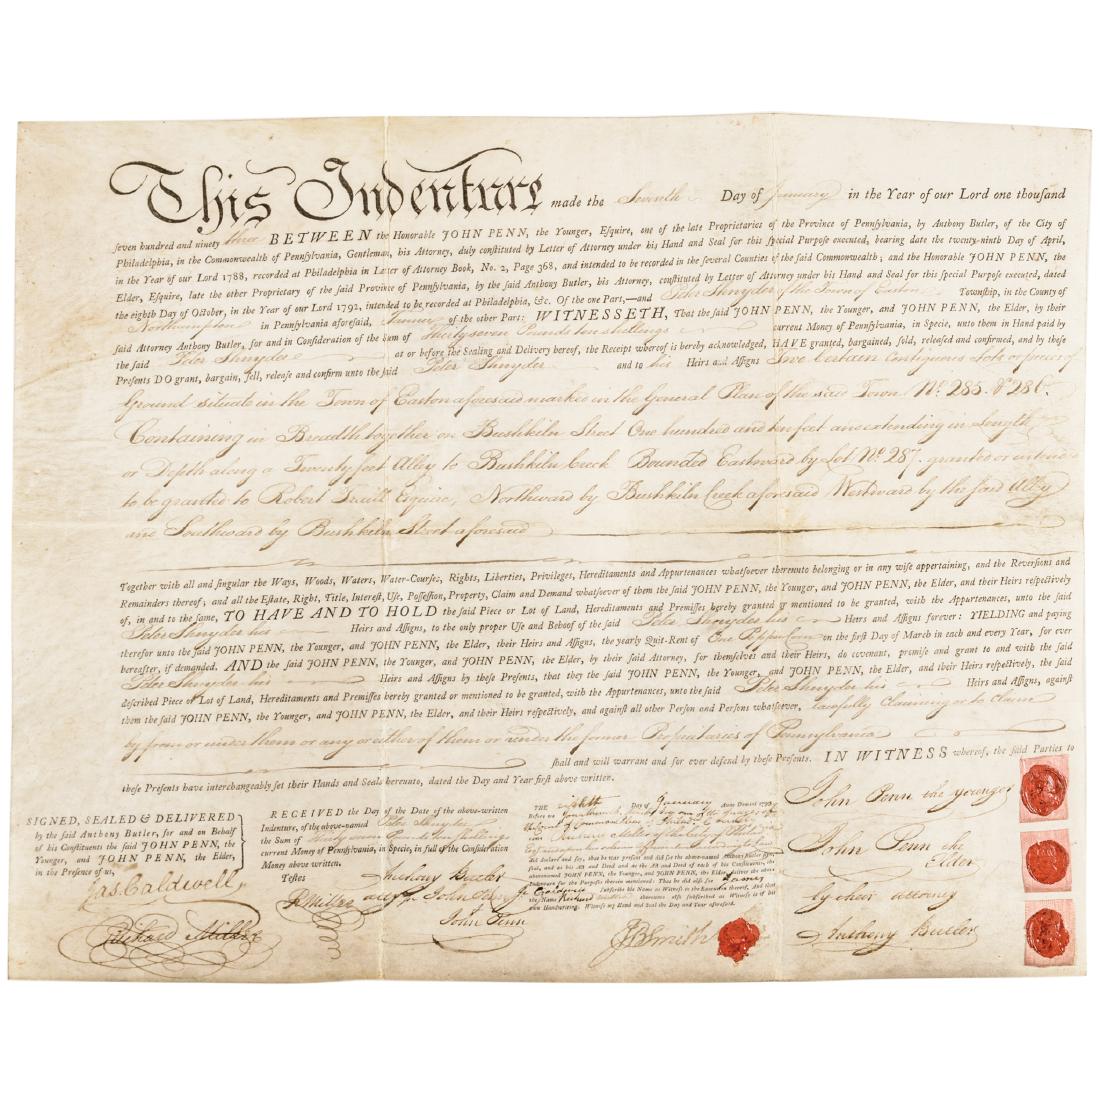 This Indenture made the Seventh Day of January in the Year of our Lord one thousand
seven hundred and ninety three BETWEEN the Honorable JOHN PENN, the Younger, Esquire, one of the late Proprietaries of the Province of Pennsylvania, by Anthony Butler, of the City of
Philadelphia, in the Commonwealth of Pennsylvania, Gentleman, his Attorney, duly constituted by Letter of Attorney under his Hand and Seal for this special Purpose executed, bearing date the twenty-ninth Day of April,
in the Year of our Lord 1788, recorded at Philadelphia in Letter of Attorney Book, No. 2, Page 368, and intended to be recorded in the several Counties of the said Commonwealth; and the Honorable JOHN PENN, the
Elder, Esquire, late the other Proprietary of the said Province of Pennsylvania, by the said Anthony Butler, his Attorney, constituted by Letter of Attorney under his Hand and Seal for this special Purpose executed, dated
the eighth Day of October, in the Year of our Lord 1792, intended to be recorded at Philadelphia, &c. Of the one Part,—and Peter Shnyder of the Town of Easton Township, in the County of
Northampton in Pennsylvania aforesaid, Tanner of the other Part: WITNESSETH, That the said JOHN PENN, the Younger, and JOHN PENN, the Elder, by their
said Attorney Anthony Butler, for and in Consideration of the Sum of Thirty seven Pounds ten shillings current Money of Pennsylvania, in Specie, unto them in Hand paid by
the said Peter Shnyder at or before the Sealing and Delivery hereof, the Receipt whereof is hereby acknowledged, HAVE granted, bargained, sold, released and confirmed, and by these
Presents DO grant, bargain, sell, release and confirm unto the said Peter Shnyder and to his Heirs and Assigns Two Certain Contiguous Lots or pieces of
Ground situate in the Town of Easton aforesaid marked in the General Plan of the said Town No. 285. & 286.
Containing in Breadth together on Bushkiln Street One hundred and ten feet and extending in Length
or Depth along a Twenty feet Alley to Bushkiln Creek Bounded Eastward by Lot No 287. granted or intended
to be granted to Robert Traill Esquire, Northward by Bushkiln Creek aforesaid Westward by the said Alley
and Southward by Bushkiln Street aforesaid
Together with all and singular the Ways, Woods, Waters, Water-Courses, Rights, Liberties, Privileges, Hereditaments and Appurtenances whatsoever thereunto belonging or in any wise appertaining, and the Reversions and
Remainders thereof; and all the Estate, Right, Title, Interest, Use, Possession, Property, Claim and Demand whatsoever of them the said JOHN PENN, the Younger, and JOHN PENN, the Elder, and their Heirs respectively
of, in and to the same, TO HAVE AND TO HOLD the said Piece or Lot of Land, Hereditaments and Premisses hereby granted or mentioned to be granted, with the Appurtenances, unto the said
Peter Shnyder his Heirs and Assigns, to the only proper Use and Behoof of the said Peter Shnyder his Heirs and Assigns forever: YIELDING and paying
therefor unto the said JOHN PENN, the Younger, and JOHN PENN, the Elder, their Heirs and Assigns, the yearly Quit-Rent of One Pepper Corn on the first Day of March in each and every Year, for ever
hereafter, if demanded. AND the said JOHN PENN, the Younger, and JOHN PENN, the Elder, by their said Attorney, for themselves and their Heirs, do covenant, promise and grant to and with the said
Peter Shnyder his Heirs and Assigns by these Presents, that they the said JOHN PENN, the Younger, and JOHN PENN, the Elder, and their Heirs respectively, the said
described Piece or Lot of Land, Hereditaments and Premisses hereby granted or mentioned to be granted, with the Appurtenances, unto the said Peter Shnyder his Heirs and Assigns, against
them the said JOHN PENN, the Younger, and JOHN PENN, the Elder, and their Heirs respectively, and against all other Person and Persons whatsoever, lawfully Claiming or to Claim
by from or under them or any or either of them or under the former Proprietaries of Pennsylvania
shall and will warrant and for ever defend by these Presents. IN WITNESS whereof, the said Parties to
these Presents have interchangeably set their Hands and Seals hereunto, dated the Day and Year first above written.
SIGNED, SEALED & DELIVERED
by the said Anthony Butler, for and on Behalf
of his Constituents the said JOHN PENN, the
Younger, and JOHN PENN, the Elder,
in the Presence of us,
Jas Caldwell,
Richard Miller
RECEIVED the Day of the Date of the above-written
Indenture, of the above-named Peter Shnyder
the Sum of Thirty seven Pounds ten shillings
current Money of Pennsylvania, in Specie, in full of the Consideration
Money above written.
Testes
Anthony Butler
R Miller atty for John Penn Jr
John Penn
THE eighth Day of January Anno Domini 1793
Before me Jonathan
did declare and say, that he was present and did see the above-named Anthony Butler
above-named JOHN PENN, the Younger, and JOHN PENN, the Elder
Indenture for the Purposes therein mentioned: That he did also see James
Caldwell subscribe his Name as Witness to the Execution thereof, And that
the Name Richard Miller thereunto also subscribed as Witness is of his
own Handwriting. Witness my Hand and Seal the Day and Year aforesaid.
JBSmith
John Penn the younger
John Penn the
Elder
by their attorney
Anthony Butler